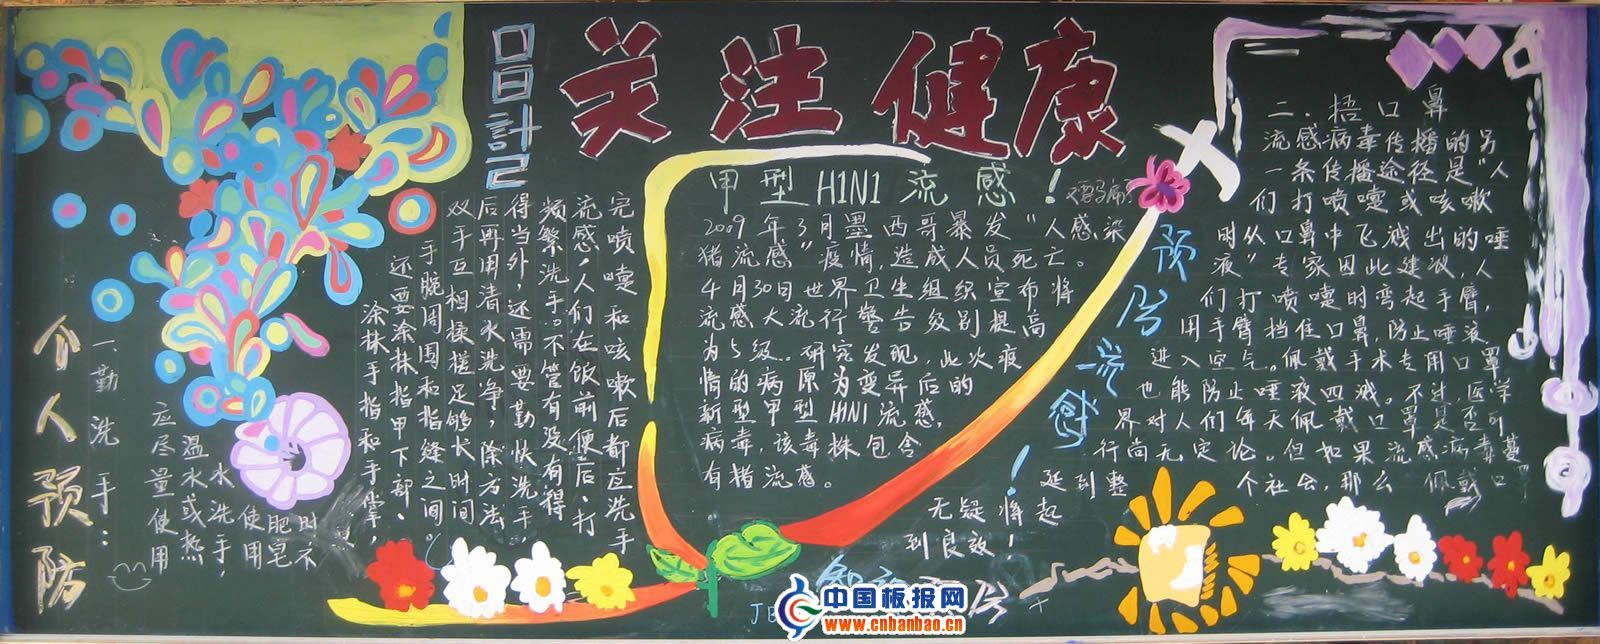 关注健康
个人预防
一.勤洗手:
应尽量使用
温水或热
水洗手,
使用
肥皂
时不
涂抹手指和手掌,
还要涂抹指甲下部、
手腕周围和指缝之间。
双手互相揉搓足够长时间
后再用清水洗净,除方法
得当外,还需要勤快洗手,
频繁洗手。不管有没有得
流感,人们在饭前便后、打
完喷嚏和咳嗽后都应洗手
甲型H1N1流感!
2009年3月墨西哥暴发“人感染
猪流感”疫情,造成人员死亡。
4月30日世界卫生组织宣布将
流感大流行警告级别提高
为5级。研究发现,此次疫
情的病原为变异后的
新型甲型H1N1流感,
病毒,该毒株包含
有猪流感。
预防流感!
二.捂口鼻
流感病毒传播的另
一条传播途径是“人
们打喷嚏或咳嗽
时从口鼻中飞溅出的唾
液”专家因此建议,人
们打喷嚏时弯起手臂,
用手臂挡住口鼻,防止唾液
进入空气。佩戴手术专用口罩
也能防止唾液四溅。不过,医学
界对人们每天佩戴口罩是否可
行尚无定论。但如果流感病毒蔓
延到整个社会,那么佩戴口
无疑将起
到良效!
中国板报网
www.cnbanbao.cn